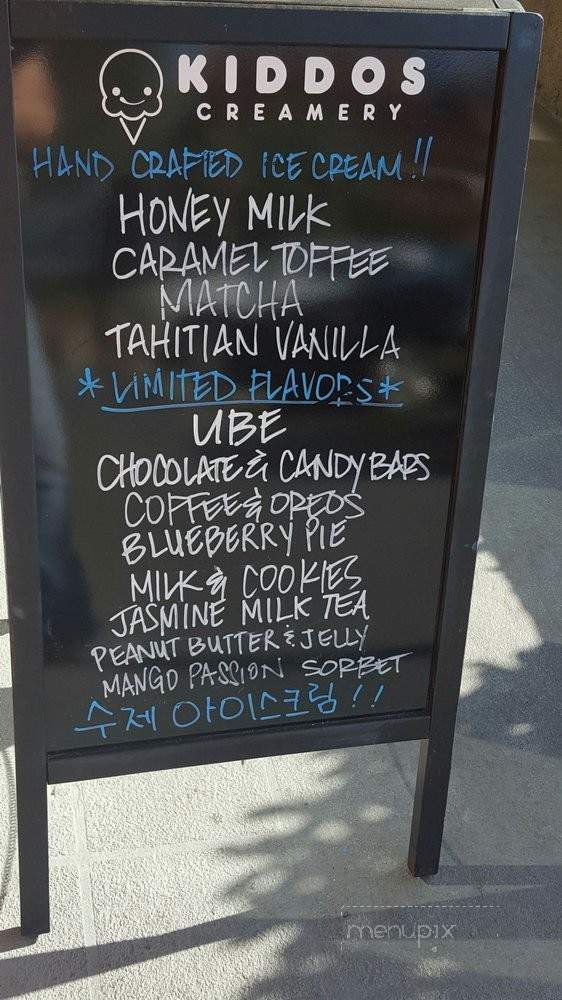 KIDDOS
CREAMERY
HAND CRAFTED ICE CREAM!!
HONEY MILK
CARAMEL TOFFEE
MATCHA
TAHITIAN VANILLA
*LIMITED FLAVORS*
UBE
CHOCOLATE & CANDY BARS
COFFEE & OREOS
BLUEBERRY PIE
MILK & COOKIES
JASMINE MILK TEA
PEANUT BUTTER & JELLY
MANGO PASSION SORBET
수제 아이스크림!!
menupix